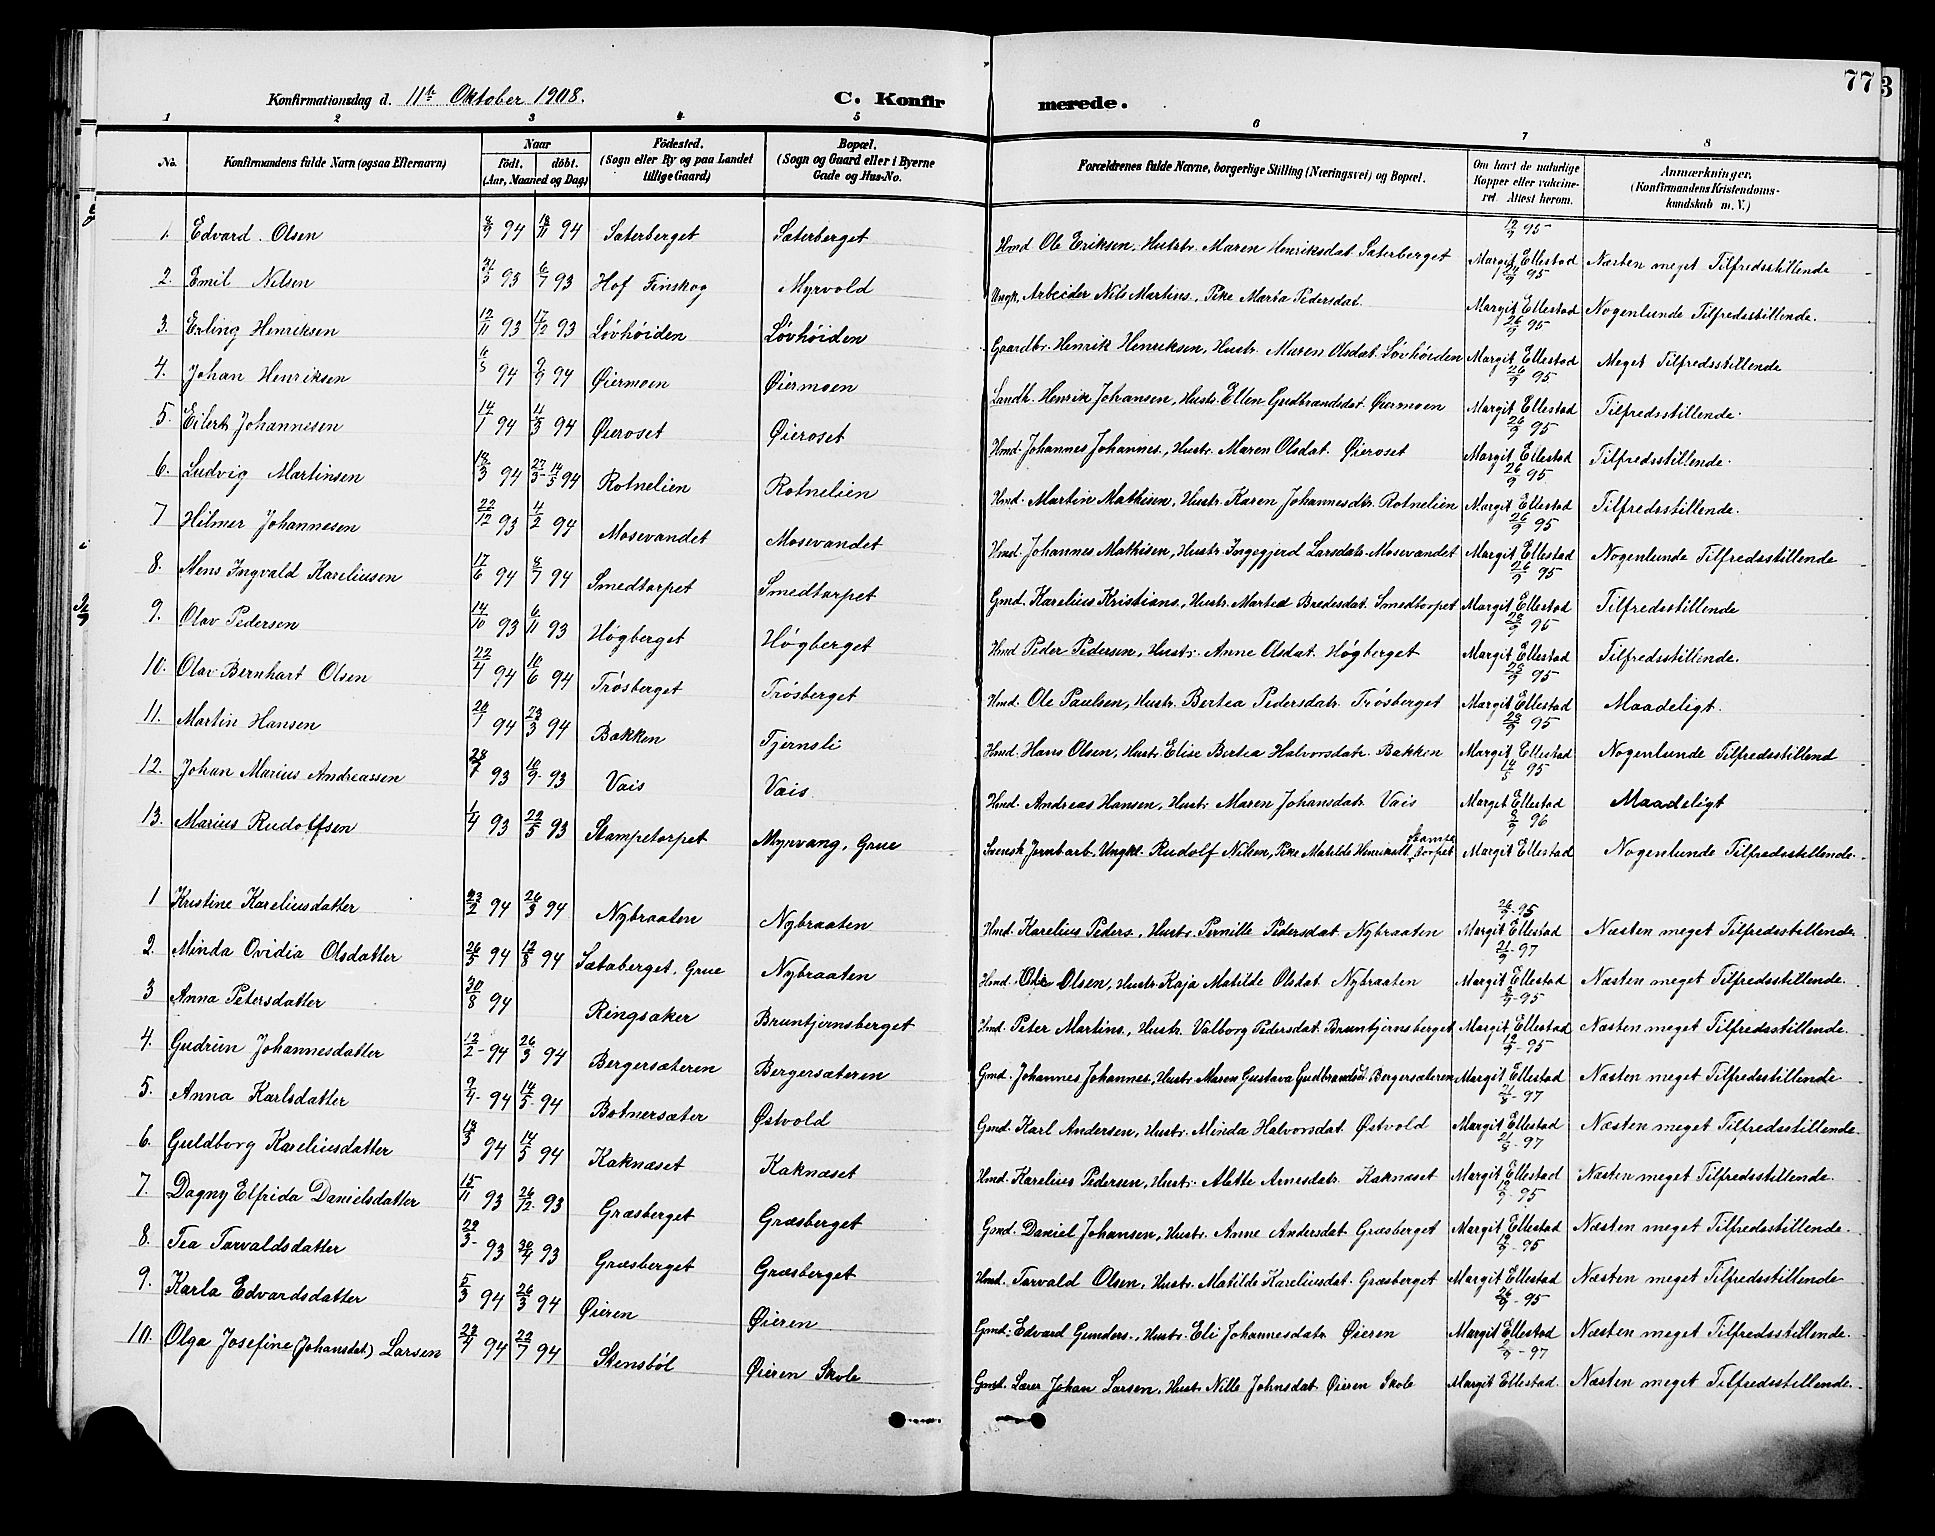 77
3
Konfirmationsdag d. 11te Oktober 1908. C. Konfirmerede.
1 2 3 4 5 6 7 8
No. Konfirmandens fulde Navn (ogsaa Efternavn) Naar født. døbt. (Aar, Maaned og Dag) Fødested. (Sogn eller By og paa Landet tillige Gaard) Bopæl. (Sogn og Gaard eller i Byerne Gade og Hus-No. Forældrenes fulde Navne, borgerlige Stilling (Næringsvei) og Bopæl. Om havt de naturlige Kopper eller vakcineret. Attest herom. Anmærkninger. (Konfirmandens Kristendomskundskab m. V.)
1. Edvard Olsen 8/9 94 18/11 94 Sæterberget Sæterberget Hmd. Ole Eriksen, Hustr. Maren Henriksdat. Sæterberget 12/9 95 Margit Ellestad Næsten meget Tilfredsstillende
2. Emil Nilsen 31/3 93 6/7 93 Hof Finskog Myrvold Ungk. Arbeider Nils Martins., Pike Marta Pedersdat. 24/9 95 Margit Ellestad Nogenlunde Tilfredsstillende.
3. Erling Henriksen 12/11 93 17/12 93 Løvhøiden Løvhøiden Gaardbr. Henrik Henriksen, Hustr. Maren Olsdat. Løvhøiden 26/9 95 Margit Ellestad Meget Tilfredsstillende
4. Johan Henriksen 94 9/9 94 Øiermoen Øiermoen Landh. Henrik Johansen, Hustr. Ellen Gudbrandsdat. Øiermoen 26/9 95 Margit Ellestad Tilfredsstillende.
5. Eilert Johannesen 14/1 94 4/3 94 Øieroset Øieroset Hmd. Johannes Johannes., Hustr. Maren Olsdat. Øieroset 26/9 95 Margit Ellestad Tilfredsstillende.
6. Ludvig Martinsen 18/3 94 27/3-14/5 94 Rotnelien Rotnelien Hmd. Martin Mathisen, Hustr. Karen Johannesdtr. Rotnelien 26/9 95 Margit Ellestad Tilfredsstillende.
7 Hilmer Johannesen 22/12 93 4/2 94 Mosevandet Mosevandet Hmd. Johannes Mathisen, Hustr. Ingegjerd Larsdatr. Mosevandet 26/9 95 Margit Ellestad Nogenlunde Tilfredsstillende
8. Mens Ingvald Kareliusen 17/6 94 8/7 94 Smedtorpet Smedtorpet Gmd. Karelius Kristians., Hustr. Martea Bredesdat. Smedtorpet 26/9 95 Margit Ellestad Tilfredsstillende
9. Olav Pedersen 14/10 93 6/11 93 Høgberget Høgberget Hmd. Peder Pedersen, Hustr. Anne Olsdat. Høgberget 28/9 95 Margit Ellestad Tilfredsstillende.
10. Olav Bernhart Olsen 22/4 94 10/6 94 Trøsberget Trøsberget Hmd. Ole Paulsen, Hustr. Bertea Pedersdatr. Trøsberget 25/9 95 Margit Ellestad Maadeligt.
11. Martin Hansen 20/1 94 23/3 94 Bakken Tjernsli Hmd. Hans Olsen, Hustr. Elise Bertea Halvorsdatr. Bakken 28/9 95 Margit Ellestad Nogenlunde Tilfredsstillend
12. Johan Marius Andreassen 28/7 93 10/9 93 Vais Vais Hmd. Andreas Hansen, Hustr. Maren Johansdatr. Vais 14/5 95 Marget Ellestad Maadeligt
13. Marius Rudolfsen 1/4 93 22/5 93 Stampetorpet Myrvang, Grue Svensk Jernbarb. Ungkl. Rudolf Nilsen, Pike Matilde Henriksdt. Stampetorpet 8/9 96 Margit Ellestad Nogenlunde Tilfredsstillende.
1 Kristine Kareliusdatter 23/2 94 26/3 94 Nybraaten Nybraaten Hmd. Karelius Peders., Hustr. Pernille Pedersdat. Nybraaten 26/9-95 Margit Ellestad Næsten meget Tilfredsstillende.
2. Minda Ovidia Olsdatter 26/5 94 12/8 94 Sætaberget, Grue Nybraaten Hmd. Ole Olsen, Hustr. Kaja Matilde Olsdat. Nybraaten 21/9-97 Margit Ellestad Næsten meget Tilfredsstillende.
3 Anna Petersdatter 30/8 94 Ringsaker Bruntjernsberget Hmd. Peter Martins., Hustr. Valborg Pedersdat. Bruntjernsberget 8/9-95 Margit Ellestad Næsten meget Tilfredsstillende.
4. Gudrun Johannesdatter 12/2-94 26/3 94 Bergersæteren Bergersæteren Gmd. Johannes Johannes., Hustr. Maren Gustava Gudbrandsdt. Bergersæteren 12/9-95 Margit Ellestad Næsten meget Tilfredsstillende
5. Anna Karlsdatter 9/4-94 14/5 94 Botnersæter Østvold Gmd. Karl Andersen, Hustr. Minda Halvorsdat. Østvold 21/8-97 Margit Ellestad Næsten meget Tilfredsstillende.
6. Guldborg Kareliusdatter 18/3 94 14/5 94 Kaknæset Kaknæset Hmd. Karelius Pedersen, Hustr. Alette Arnesdatr. Kaknæset 21/8-97 Margit Ellestad Næsten meget Tilfredsstillende.
7. Dagny Elfrida Danielsdatter 15/11 93 26/12 93 Græsberget Græsberget Gmd. Daniel Johansen, Hustr. Anne Andersdat. Græsberget 12/9-95 Margit Ellestad Næsten meget Tilfredsstillende.
8. Tea Tarvaldsdatter 22/3-93 30/4 93 Græsberget Græsberget Hmd. Tarvald Olsen, Hustr. Matilde Kareliusdat. Græsberget 12/9-95 Margit Ellestad Næsten meget Tilfredsstillende
9. Karla Edvardsdatter 5/3 94 26/3 94 Øieren Øieren Gmd. Edvard Gunders., Hustr. Eli Johannesdatr. Øieren 26/9-95 Margit Ellestad Næsten meget Tilfredsstillende.
10. Olga Josefine (Johansdat.) Larsen 23/4 94 22/7 94 Stensbøl Øieren Skole Gmd. Lærer Johan Larsen, Hustr. Nille Johnsdat. Øieren Skole 2/9-97 Margit Ellestad. Næsten meget Tilfredsstillende.